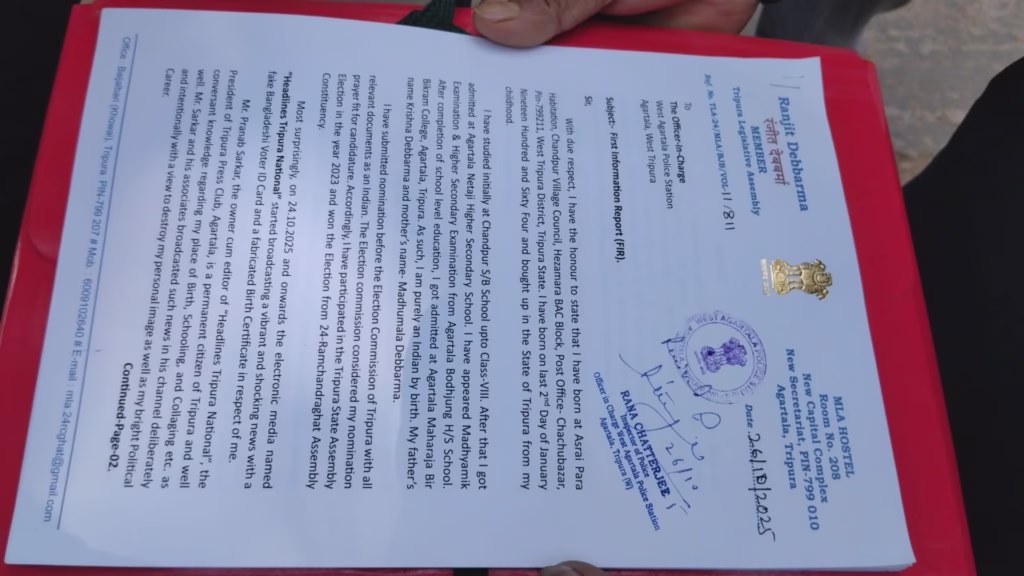 Ranjit Debbarma
रंजीत देबबर्मा
MEMBER
Tripura Legislative Assembly
MLA HOSTEL
Room No. 208
New Capital Complex
New Secretariat, PIN-799 010
Agartala, Tripura
Ref. No. TLA-24/MLA/BJB/VOL-11/811
Date 26/10/2025
To
The Officer-in-Charge
West Agartala Police Station
Agartala, West Tripura
26/10
RANA CHATTERJEE
Inspector of Police
Officer in Charge West Agartala Police Station
Agartala, Tripura (W)
Subject:- First Information Report (FIR).
Sir,
With due respect, I have the honour to state that I have been born at Asrai Para
Habitation, Chandpur Village Council, Hezamara BAC Block, Post Office- Chachubazar,
Pin-799211, West Tripura District, Tripura State. I have born on last 2nd Day of January
Nineteen Hundred and Sixty Four and bought up in the State of Tripura from my
childhood.
I have studied initially at Chandpur S/B School upto Class-VIII. After that I got
admitted at Agartala Netaji Higher Secondary School. I have appeared Madhyamik
Examination & Higher Secondary Examination from Agartala Bodhjung H/S School.
After completion of school level education, I got admitted at Agartala Maharaja Bir
Bikram College, Agartala, Tripura. As such, I am purely an Indian by birth. My father's
name Krishna Debbarma and mother's name- Madhumala Debbarma.
I have submitted nomination before the Election Commission of Tripura with all
relevant documents as an Indian. The Election commission considered my nomination
prayer fit for candidature. Accordingly, I have participated in the Tripura State Assembly
Election in the year 2023 and won the Election from 24-Ramchandraghat Assembly
Constituency.
Most surprisingly, on 24.10.2025 and onwards the electronic media named
"Headlines Tripura National" started broadcasting a vibrant and shocking news with a
fake Bangladeshi Voter ID Card and a fabricated Birth Certificate in respect of me.
Mr. Pranab Sarkar, the owner cum editor of "Headlines Tripura National", the
President of Tripura Press Club, Agartala, is a permanent citizen of Tripura and well
conversant knowledge regarding my place of Birth, Schooling, and Collaging etc. as
well. Mr. Sarkar and his associates broadcasted such news in his channel deliberately
and intentionally with a view to destroy my personal image as well as my bright Political
Career.
Continued-Page-02.
Office : Baijalbari (Khowai), Tripura PIN-799 207 # Mob. : 6009102640 # E-mail : mla 24rcghat@gmail.com